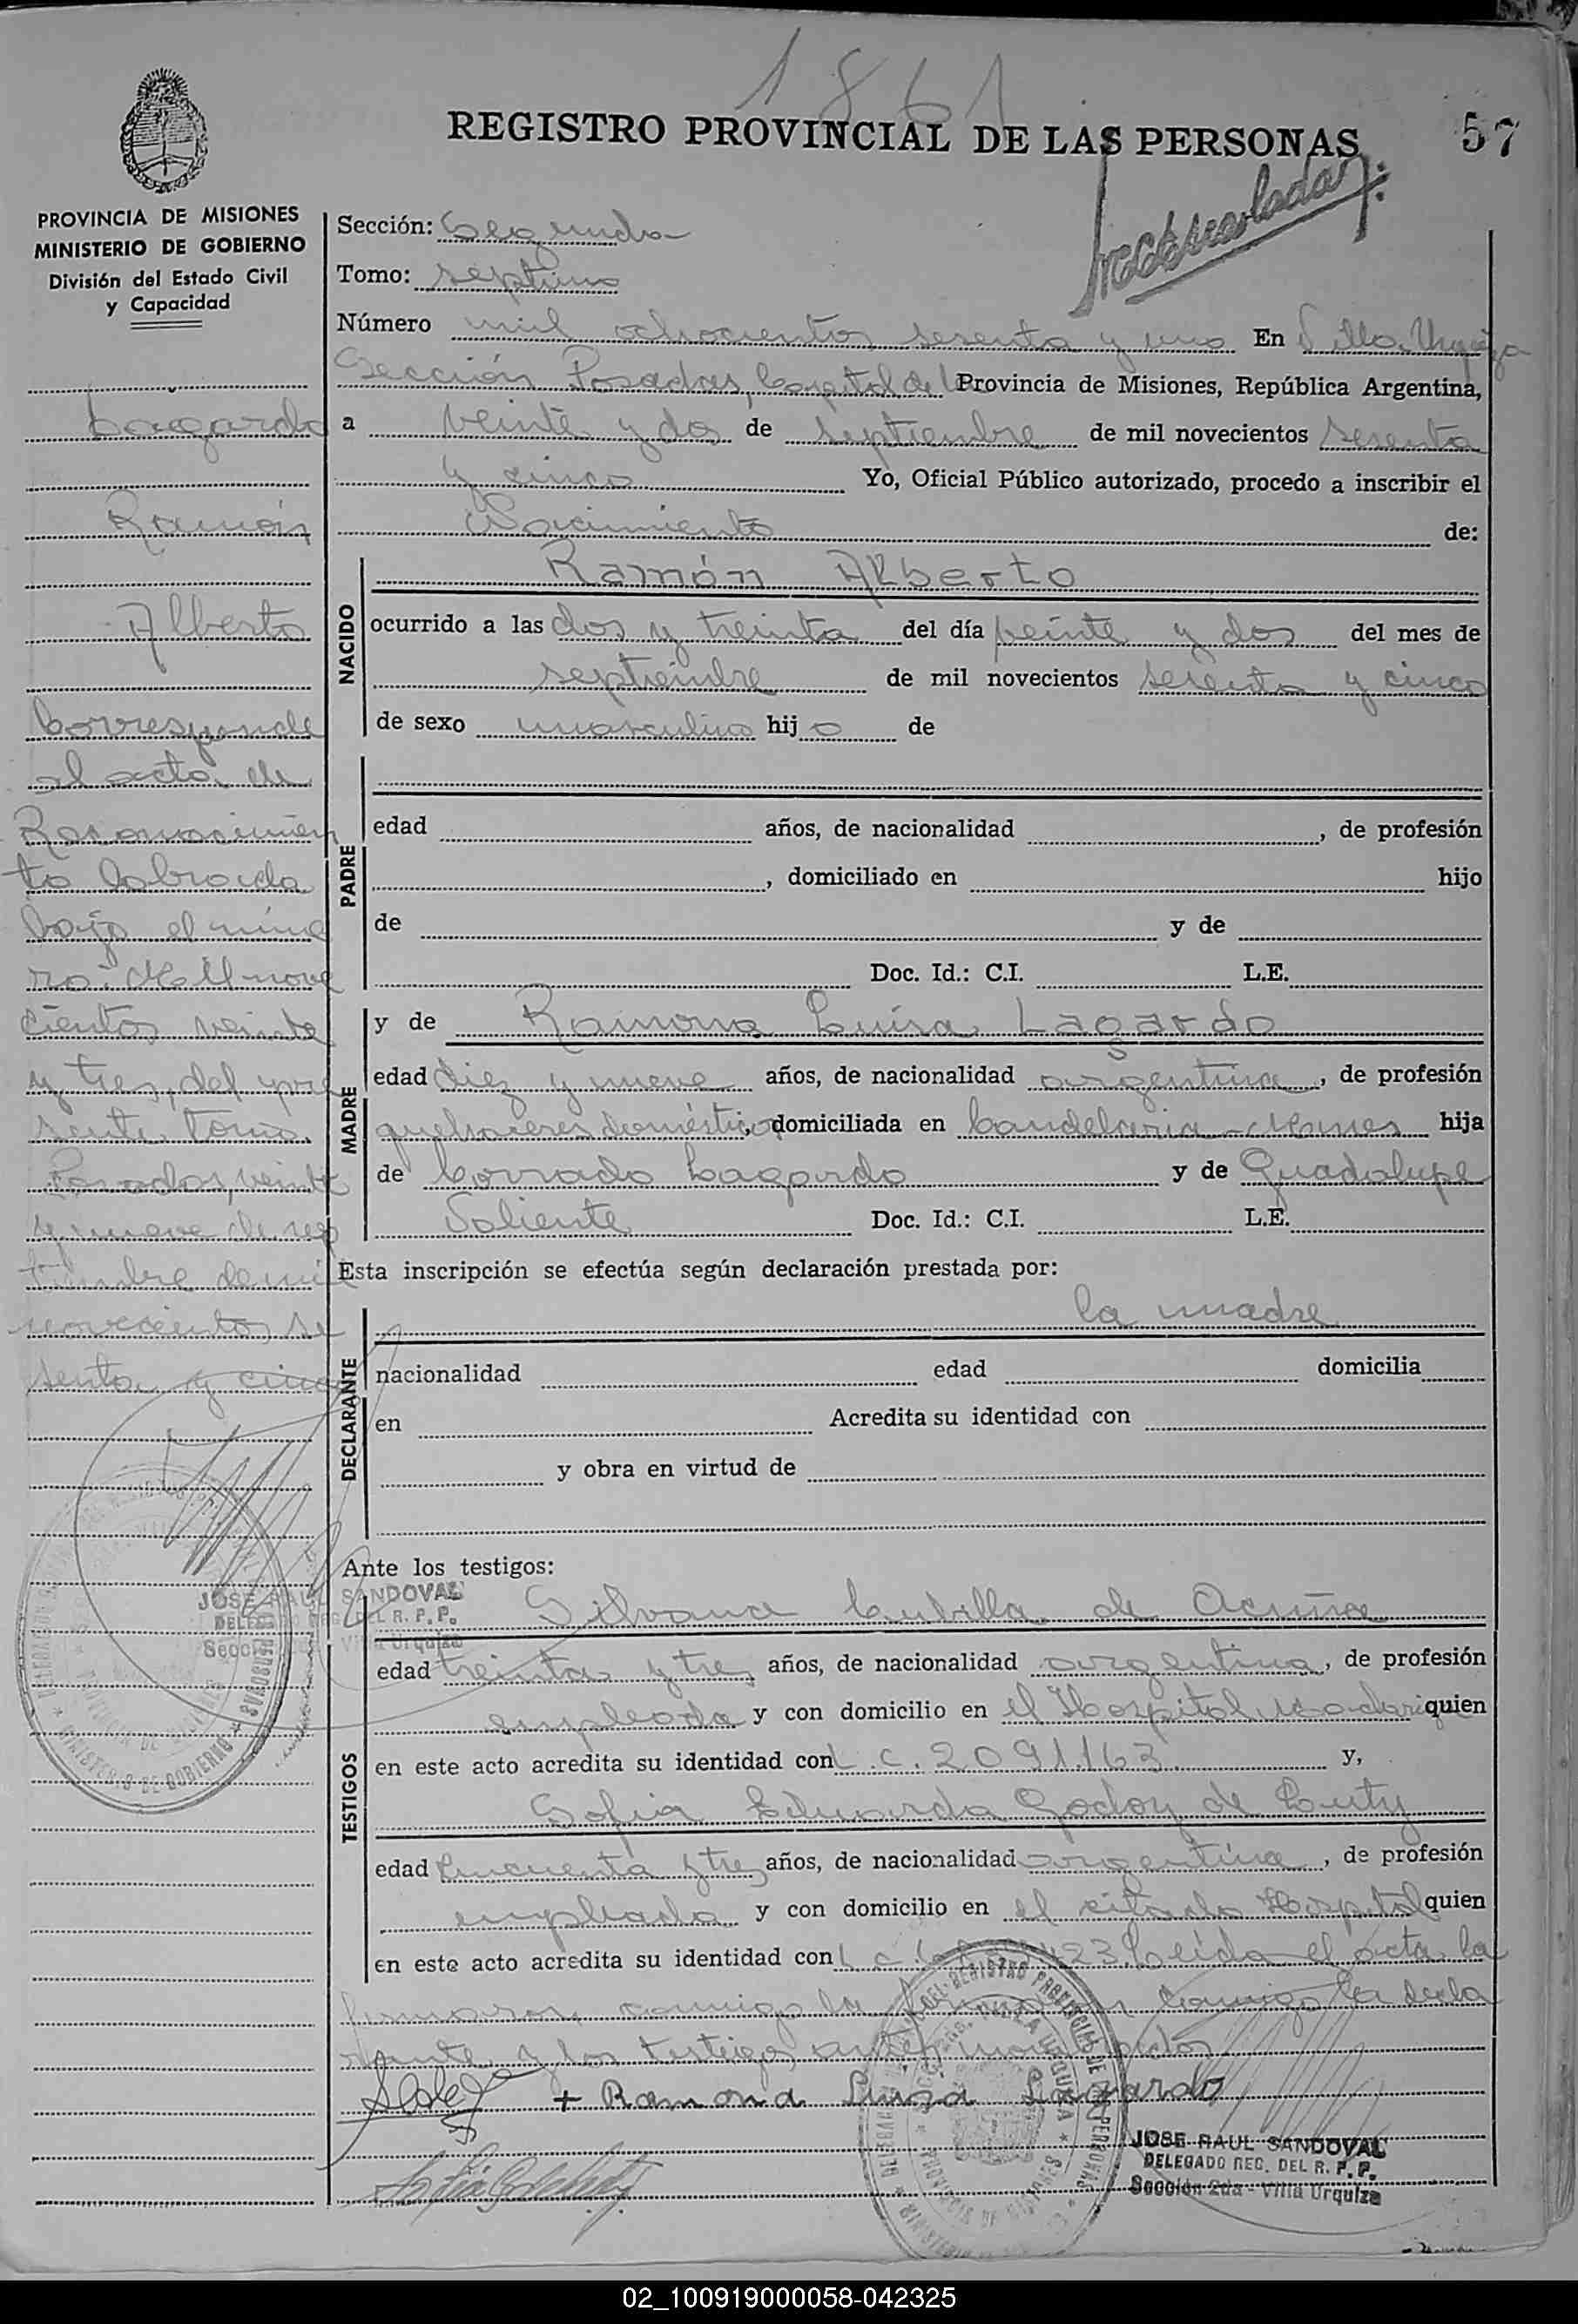 1861
REGISTRO PROVINCIAL DE LAS PERSONAS
57
PROVINCIA DE MISIONES
MINISTERIO DE GOBIERNO
División del Estado Civil
y Capacidad
Lagardo
Ramón
Alberto
Corresponde
al acta de
Reconocimien
to labrada
bajo el núme
ro: Mil nove
cientos veinte
y tres, del pre
sente tomo.
Posadas, veinte
y nueve de sep
tiembre de mil
novecientos se
senta y cinco
JOSE RAUL SANDOVAL
DELEGADO REG. DEL R. P. P.
Sección 2da - Villa Urquiza
Sección: Segunda
Tomo: septimo
Número mil ochocientos sesenta y uno En Villa Urquiza
Sección Posadas, Capital de la Provincia de Misiones, República Argentina,
a veinte y dos de septiembre de mil novecientos sesenta
y cinco Yo, Oficial Público autorizado, procedo a inscribir el
Nacimiento de:
NACIDO
Ramón Alberto
ocurrido a las dos y treinta del día veinte y dos del mes de
septiembre de mil novecientos sesenta y cinco
de sexo masculino hijo de
PADRE
edad años, de nacionalidad , de profesión
, domiciliado en hijo
de y de
Doc. Id.: C.I. L.E.
MADRE
y de Ramona Luisa Lagardo
edad diez y nueve años, de nacionalidad argentina, de profesión
quehaceres domésticos, domiciliada en Candelaria - Mnes hija
de Corrado Lagardo y de Guadalupe
Saliente Doc. Id.: C.I. L.E.
Esta inscripción se efectúa según declaración prestada por:
la madre
DECLARANTE
nacionalidad edad domicilia
en Acredita su identidad con
y obra en virtud de
Ante los testigos:
TESTIGOS
Silvana Cubilla de Acuña
edad treinta y tres años, de nacionalidad argentina, de profesión
empleada y con domicilio en el Hospital Madariaga quien
en este acto acredita su identidad con L.C. 2091.163 y,
Sofia Eduarda Godoy de Luty
edad cincuenta y tres años, de nacionalidad argentina, de profesión
empleada y con domicilio en el citado Hospital quien
en este acto acredita su identidad con L.C. 423. Leída el acta la
firmaron conmigo la conmigo la decla
rante y los testigos
+ Ramona Luisa Lagardo
JOSE RAUL SANDOVAL
DELEGADO REG. DEL R. P. P.
Sección 2da - Villa Urquiza
02_100919000058-042325